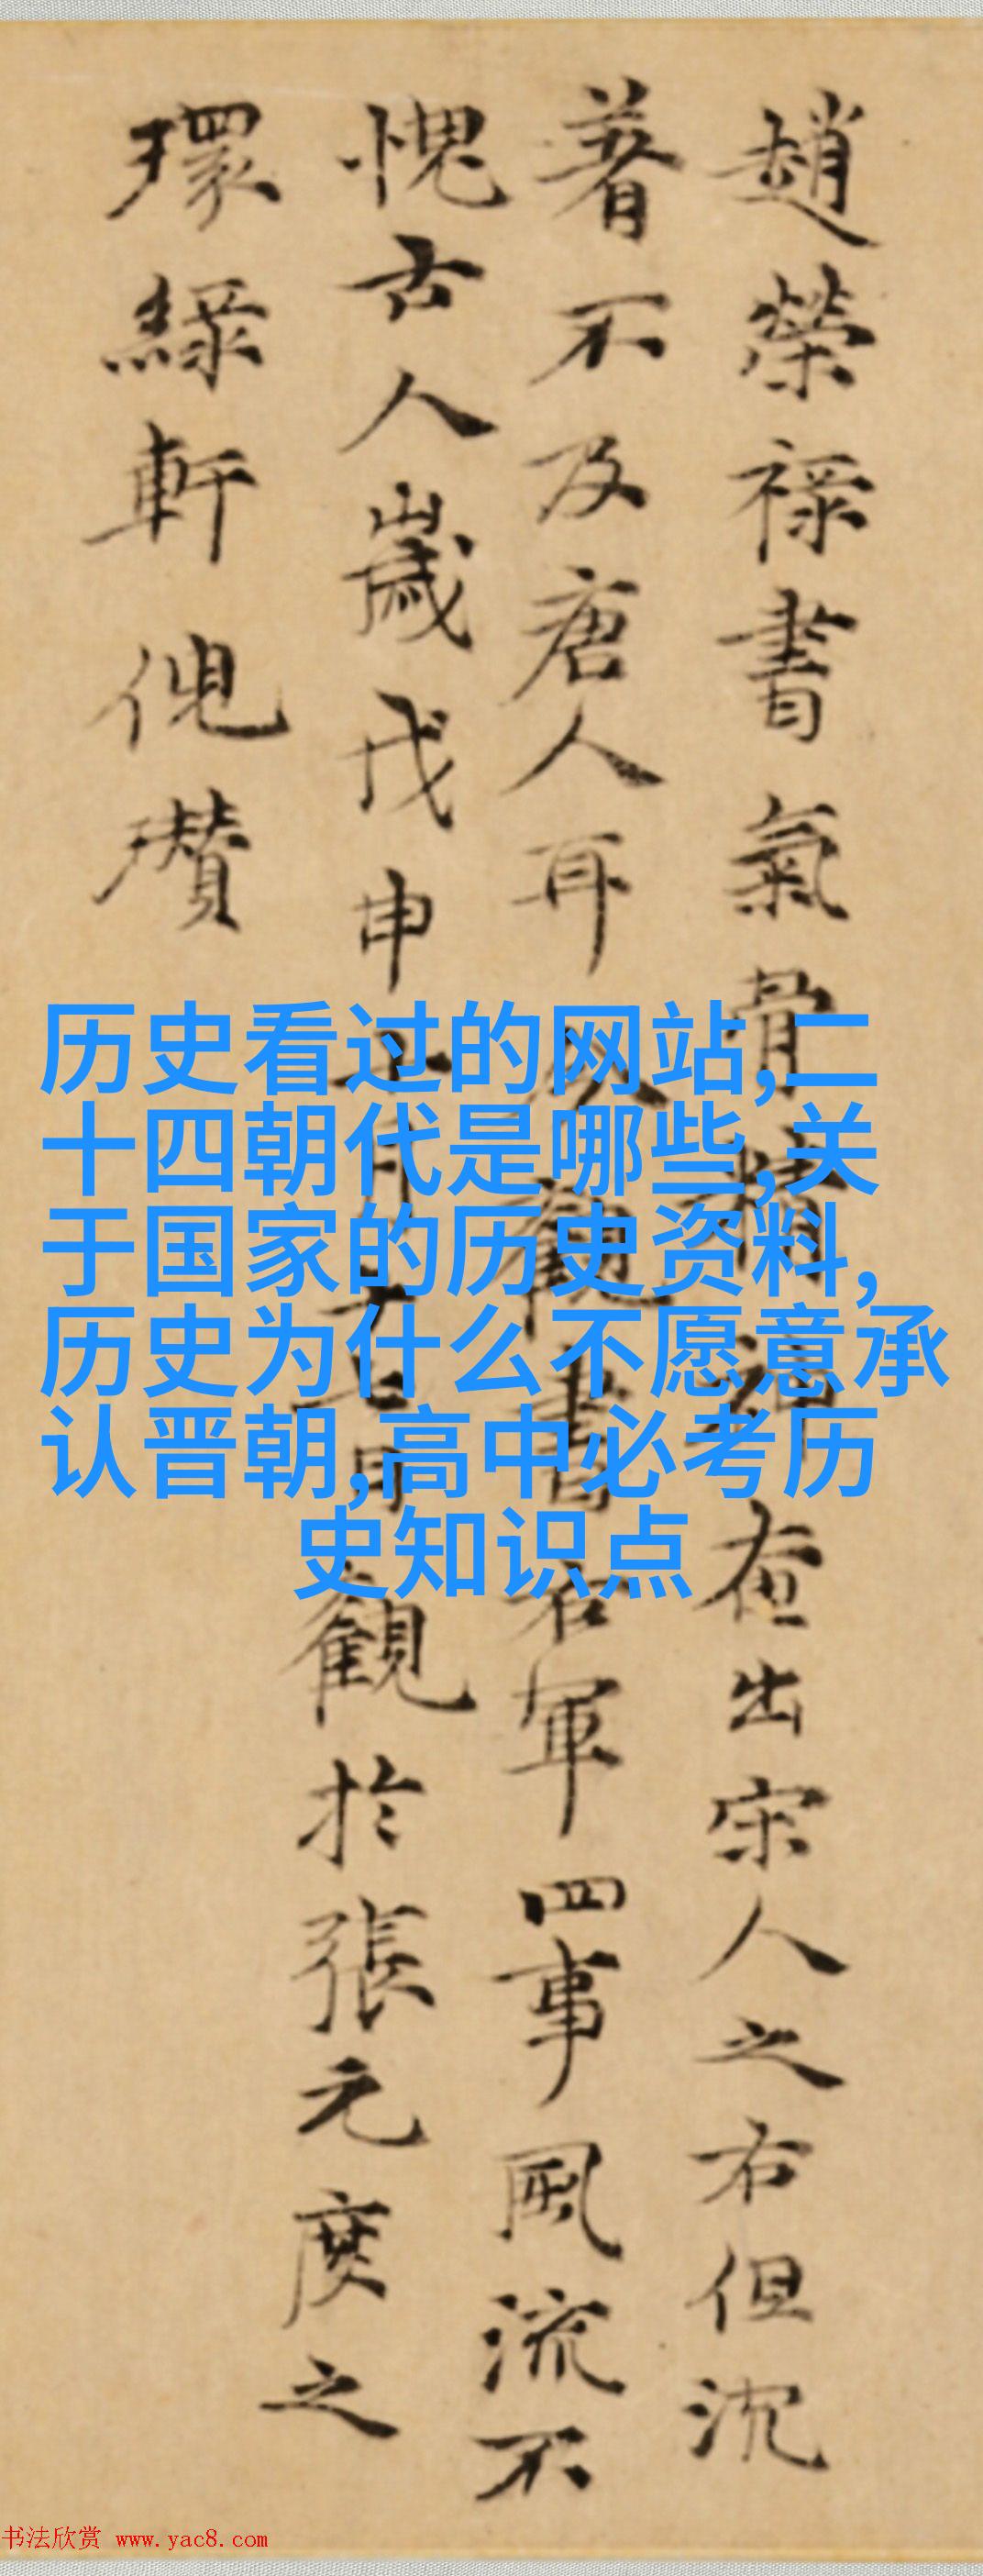 趙榮祿書氣骨精神在出宋人之右但沈
著不及唐人耳觀書右軍四事風流不
愧古人歲戊申十月十五日觀於張元度之
環綠軒倪瓚
历史看过的网站,二
十四朝代是哪些,关
于国家的历史资料,
历史为什么不愿意承
认晋朝,高中必考历
史知识点
书法欣赏 www.yac8.com